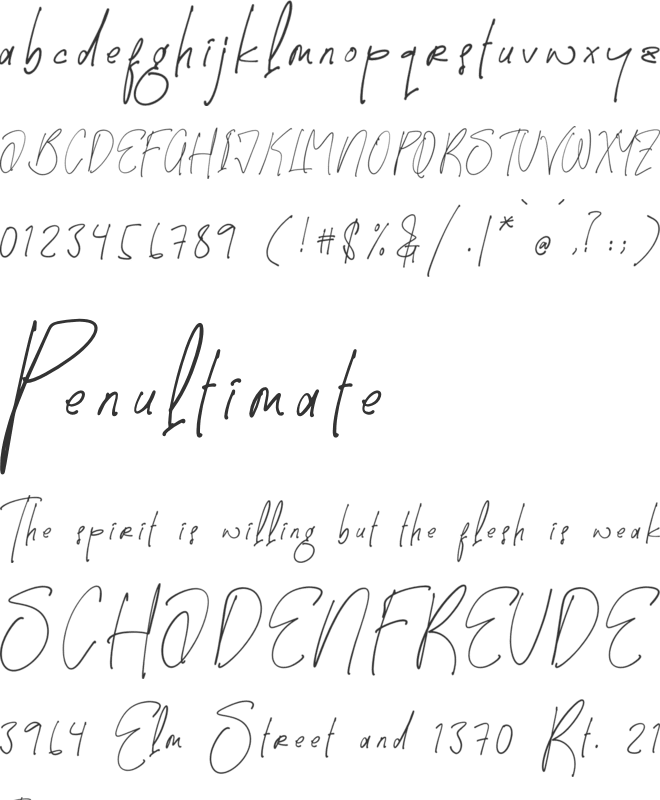 abcdefghijklmnopqrstuvwxyz
ABCDEFGHIJKLMNOPQRSTUVWXYZ
0123456789 (!#$%&/.|*`@´,?:;)
Penultimate
The spirit is willing but the flesh is weak
SCHADENFREUDE
3964 Elm Street and 1370 Rt. 21